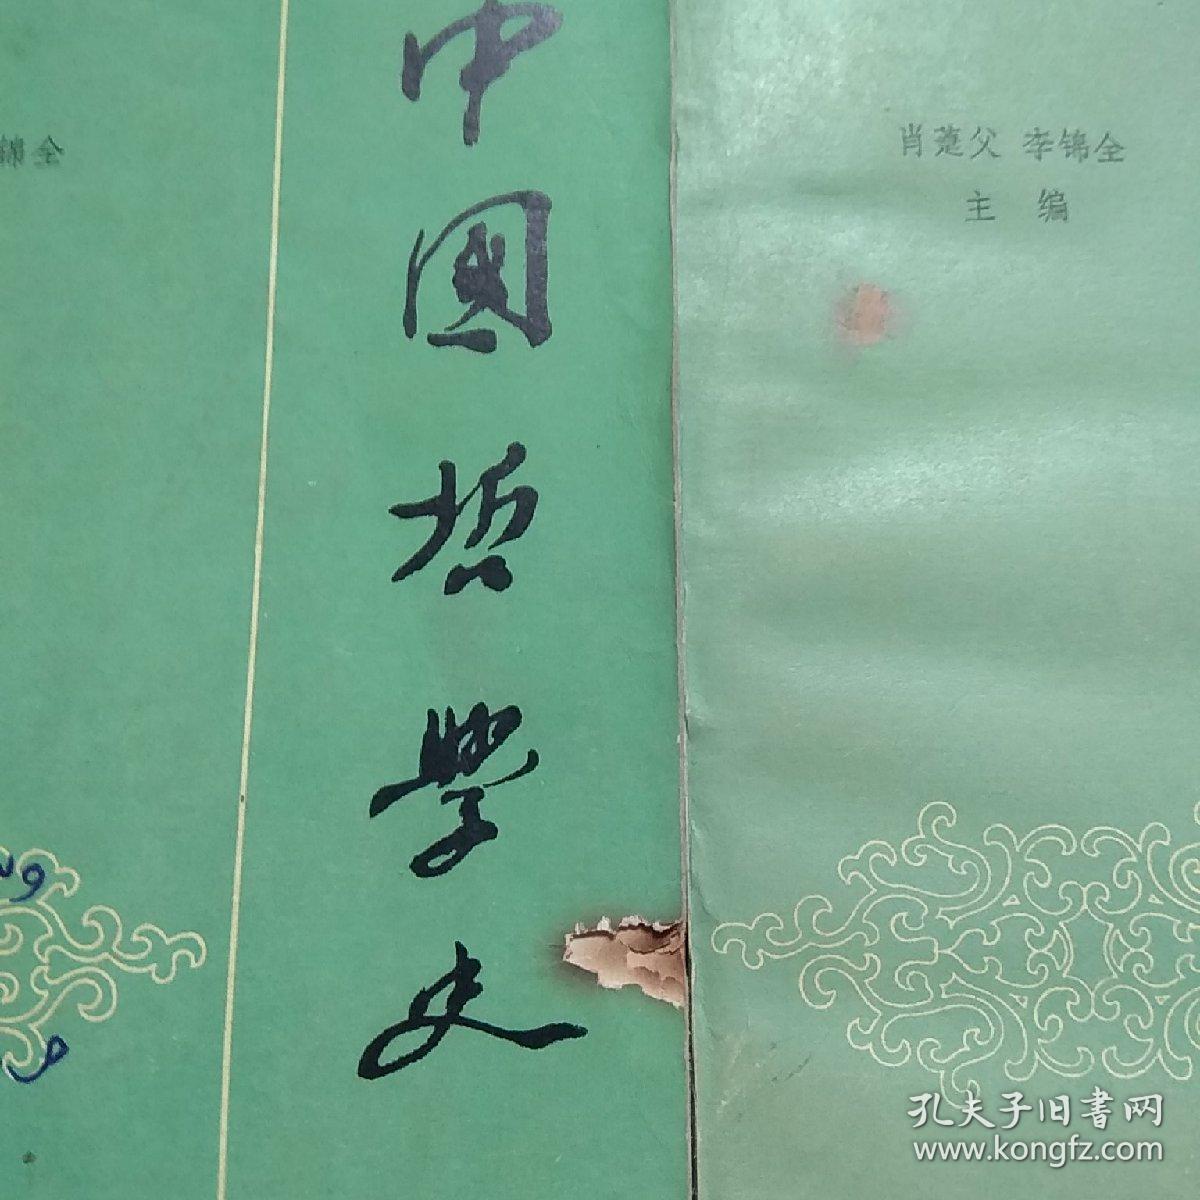 中國哲學史
肖萐父 李锦全
主 编
全
孔夫子旧书网
www.kongfz.com